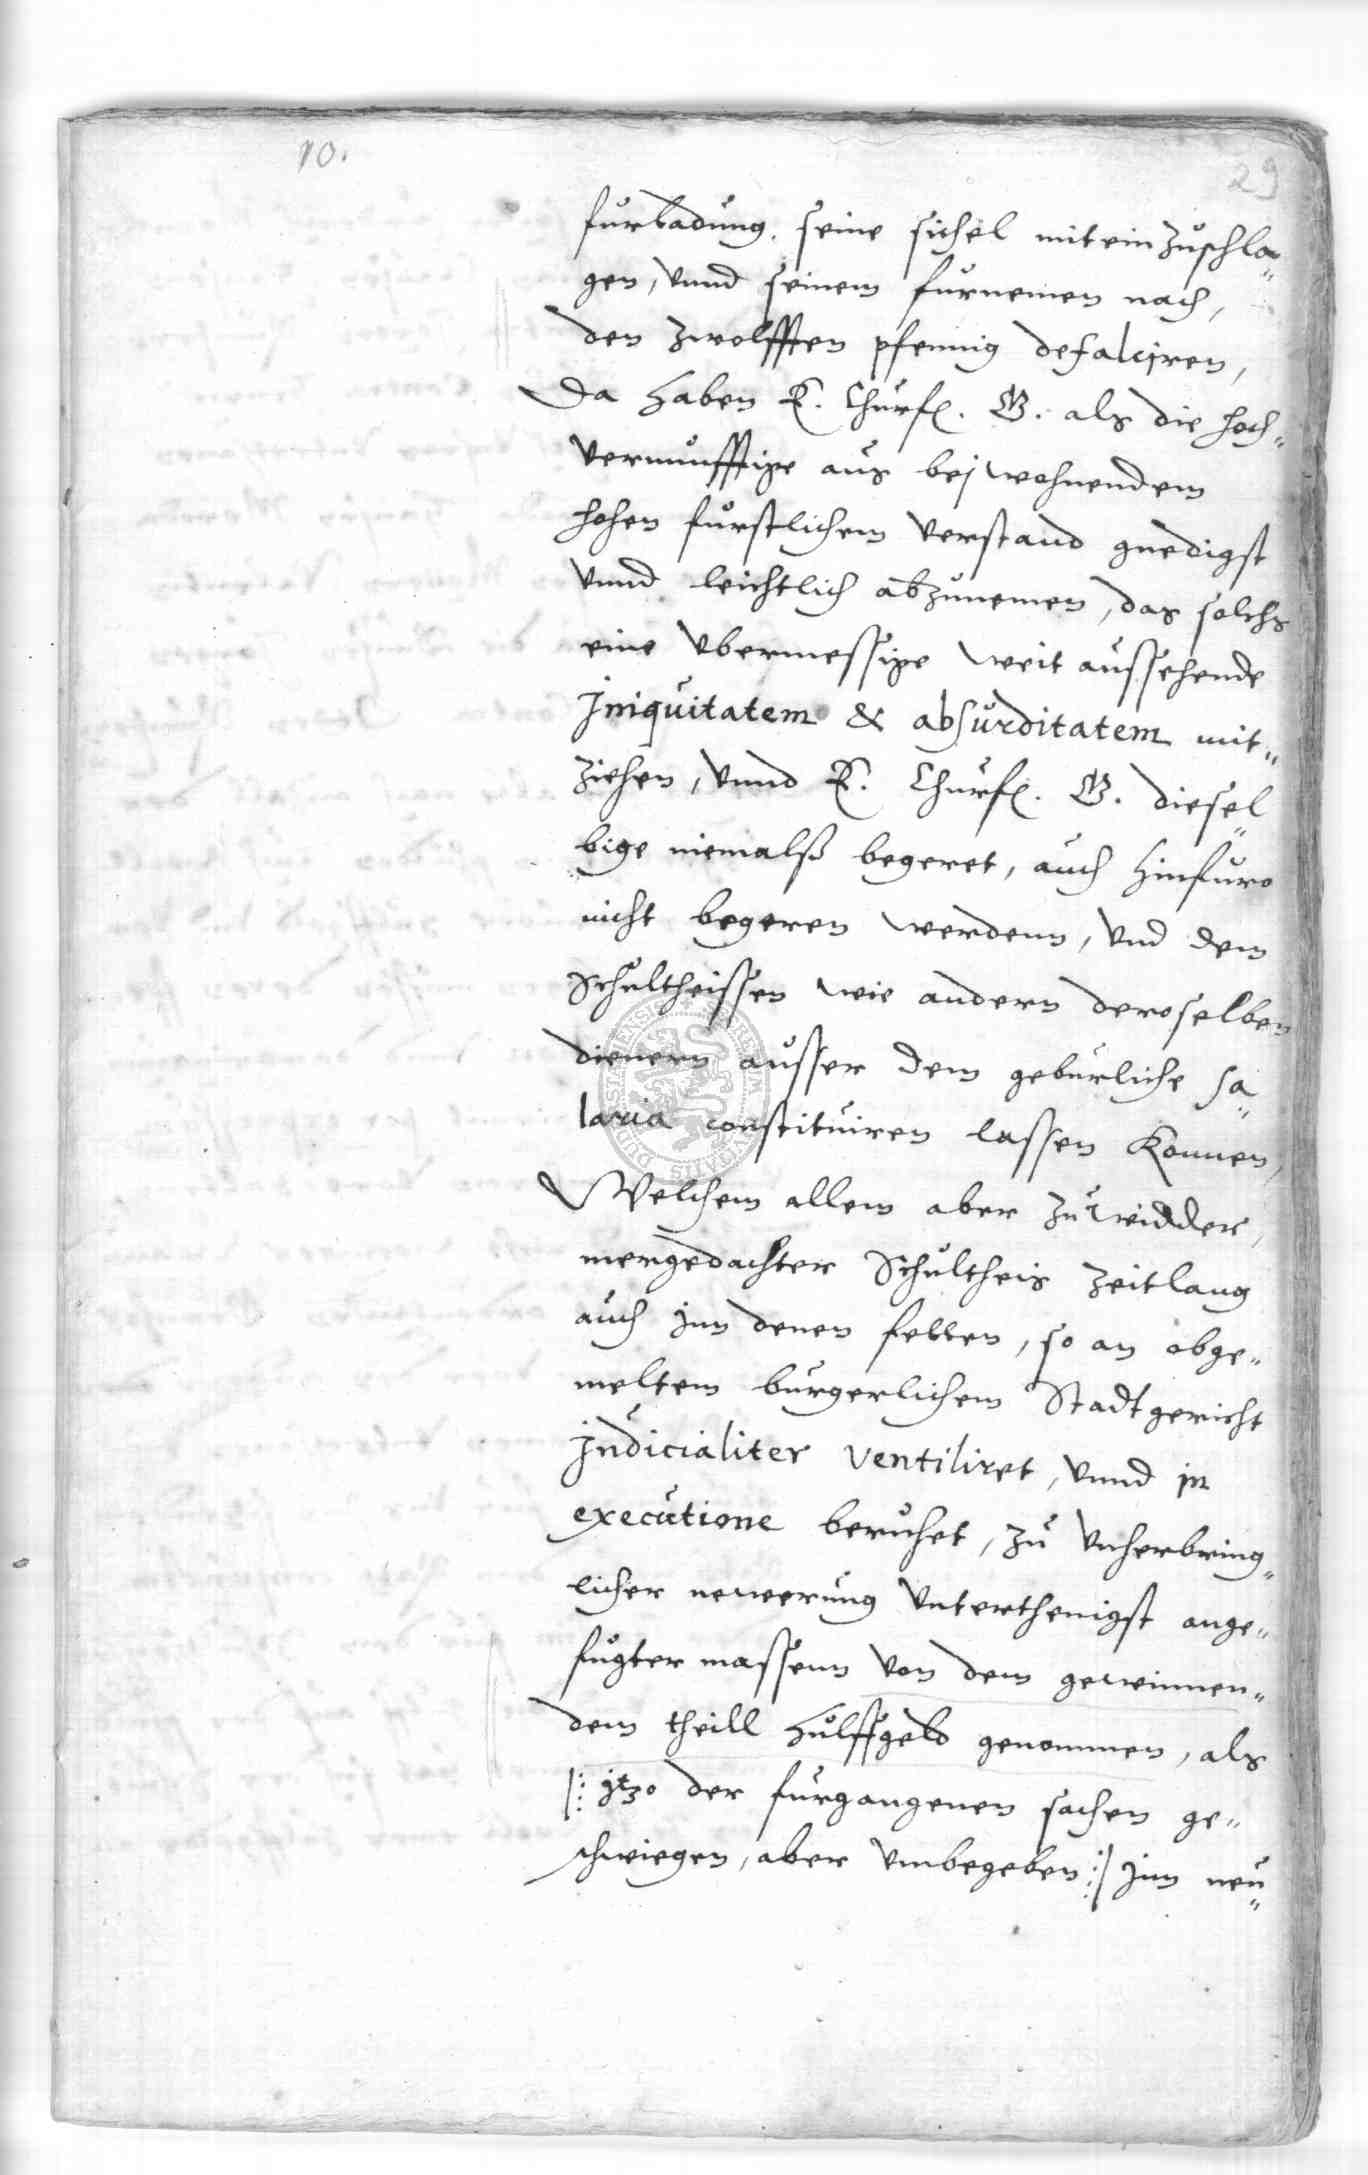 10.
29
furladung, seine sichel mit ein zuschla„
gen, vnnd seinem furnemen nach,
den zwolfften pfennig defalciren,
Da haben E. Churf. G. als die hoch„
vernunfftige aus beywohnendem
hohen furstlichem verstand gnedigst
vnnd leichtlich abzunemen, das solchs
eine vbermessige weit aussehende
Iniquitatem & absurditatem mit„
ziehen, vnnd E. Churf. G. diesel„
bige niemalß begeret, auch hinfuro
nicht begeren werdenn, vnd dem
Schultheissen wie andern deroselben
dienern ausser dem geburliche sa„
laria constituiren lassen konnen,
Welchem allem aber zuwidder,
mergedachter Schultheis zeitlang
auch jnn denen fellen, so an obge„
meltem burgerlichem Stadtgericht
judicialiter ventiliret, vnnd in
executione beruhet, zu vnherbring„
licher newerung vnterthenigst ange„
fugter massenn von dem gewinnen„
dem theill hulffgeld genommen, als
|: jtzo der furgangenen sachen ge„
schwiegen, aber vnbegeben :| jnn neu„